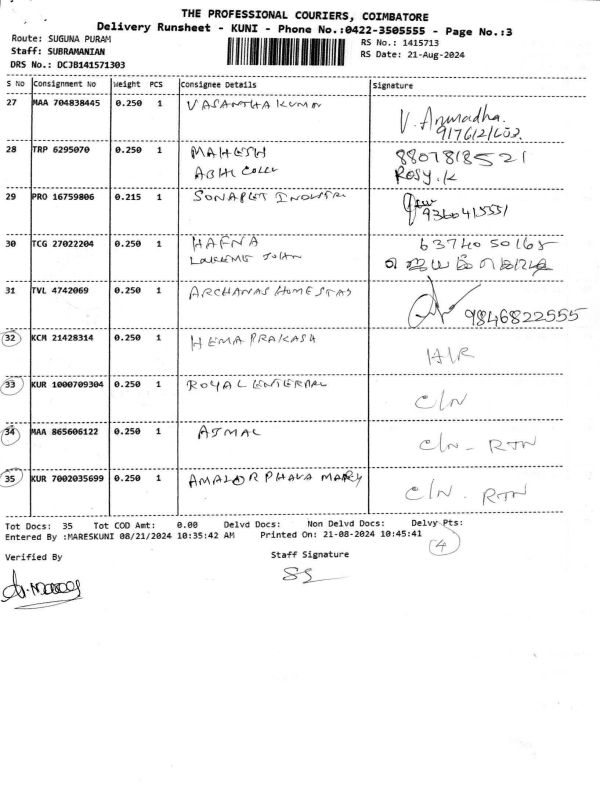 THE PROFESSIONAL COURIERS, COIMBATORE
Delivery Runsheet - KUNI - Phone No.:0422-3505555 - Page No.:3
Route: SUGUNA PURAM
RS No.: 1415713
Staff: SUBRAMANIAN
RS Date: 21-Aug-2024
DRS No.: DCJB141571303
S No Consignment No Weight PCS Consignee Details Signature
27 MAA 704838445 0.250 1 VASANTHA KUMAR V. Anuradha.
9176121602
28 TRP 6295070 0.250 1 MAHESH 8807818521
ABHI Rosy.K
29 PRO 16759806 0.215 1 9360415551
30 TCG 27022204 0.250 1 HAFNA 6374050165
JOHN
31 TVL 4742069 0.250 1 ARCHANAS HOMESTAY 9846822555
32 KCM 21428314 0.250 1 HEMAPRAKASH H/R
33 KUR 1000709304 0.250 1 ROYAL C/N
34 MAA 865606122 0.250 1 AJMAL C/N - RTN
35 KUR 7002035699 0.250 1 AMALOR PHAVA MARY C/N - RTN
Tot Docs: 35 Tot COD Amt: 0.00 Delvd Docs: Non Delvd Docs: Delvy Pts:
Entered By :MARESKUNI 08/21/2024 10:35:42 AM Printed On: 21-08-2024 10:45:41
4
Verified By Staff Signature